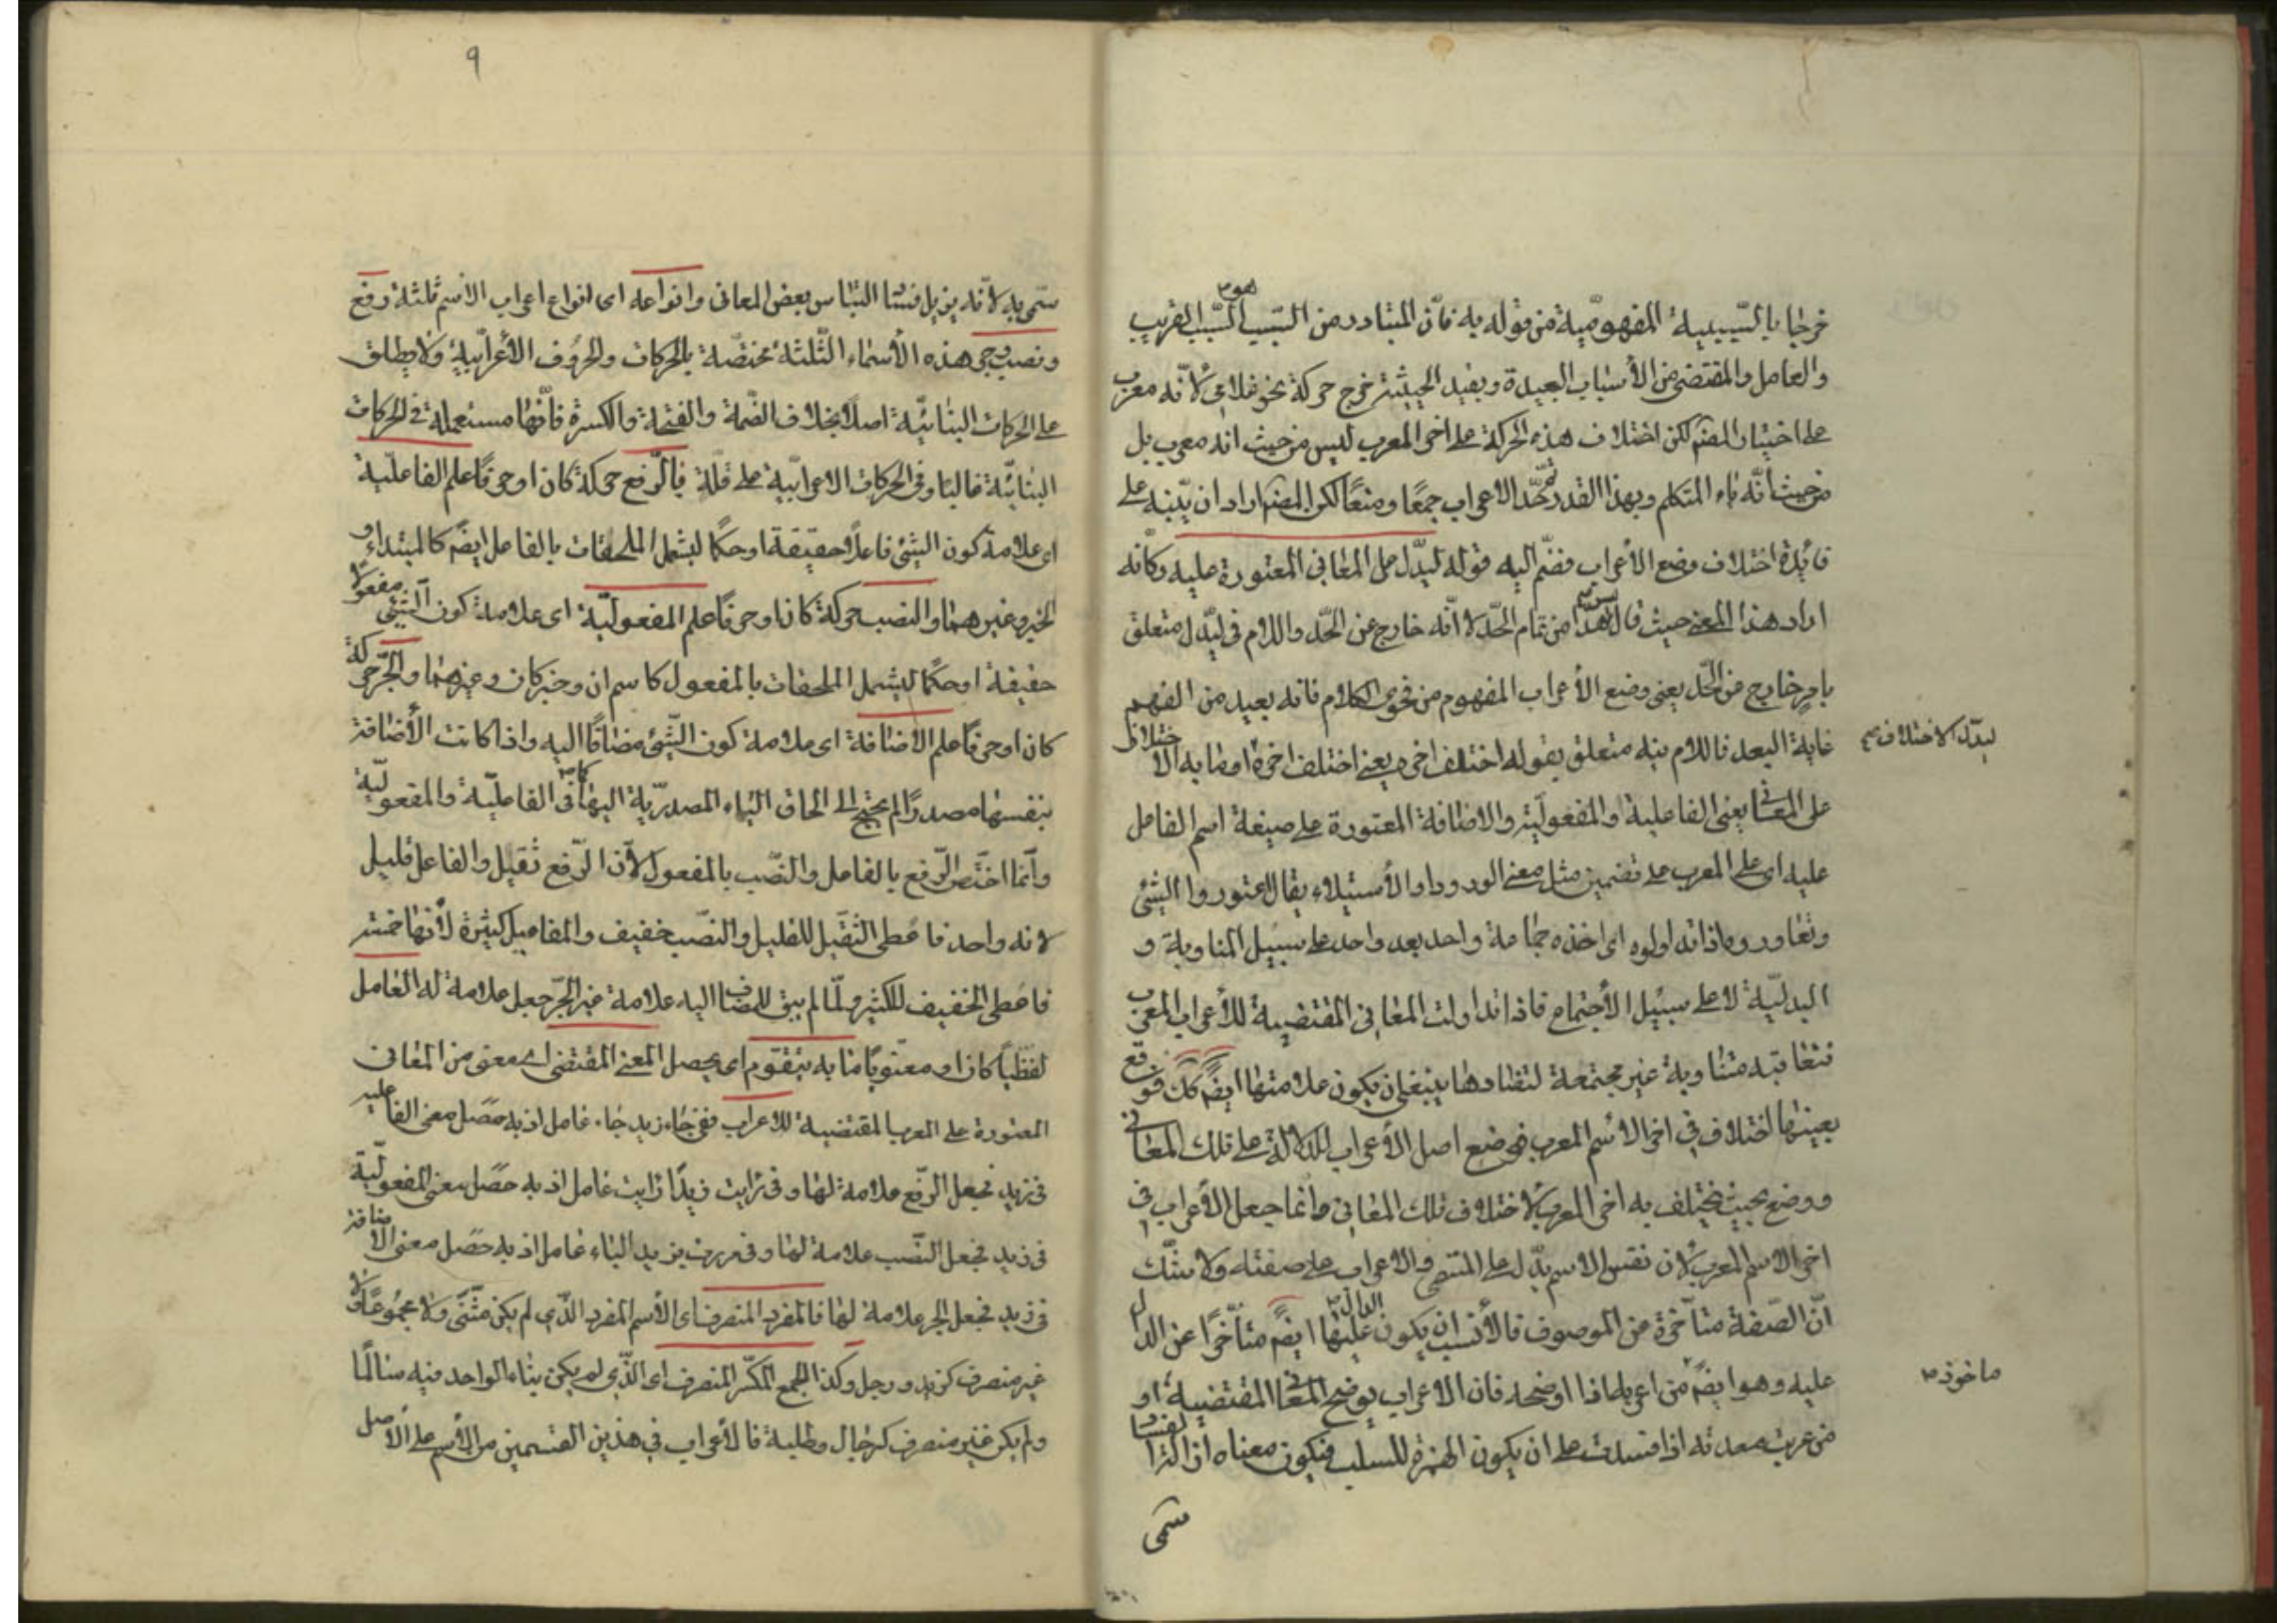 خرجا بالسببية المفهومية من قوله به فان المتبادر من السبب هو السبب القريب
والعامل والمقتضى من الأسباب البعيدة وبقيد الحيثية خرج حركة نحو غلامى لانه معرب
على اختيار المصنف لكن اختلاف هذه الحركة على اخر المعرب ليس من حيث انه معرب بل
من حيث انه ياء المتكلم وبهذا القدر تم حد الاعراب جمعا ومنعا لكن المصنف اراد ان ينبه على
فائدة اختلاف وضع الأعراب فضم اليه قوله ليدل على المعانى المعتورة عليه وكانه
اراد هذا المعنى حيث قال ليس هذا من تمام الحد لا انه خارج عن الحد واللام فى ليدل متعلق
بامر خارج عن الحد يعنى وضع الأعراب المفهوم من فحوى الكلام فانه بعيد من الفهم
غاية البعد فاللام فيه متعلق بقوله اختلف اخره يعنى اختلف اخره ما به الاختلاف
ليدل الاختلاف صح
على المعانى يعنى الفاعلية والمفعولية والاضافة المعتورة على صيغة اسم الفاعل
عليه اى على المعرب على تضمين مثل معنى الورود او الأستيلاء يقال اعتوروا الشئ
وتعاوروه اذا تداولوه اى اخذه جماعة واحد بعد واحد على سبيل المناوبة و
البدلية لا على سبيل الأجتماع فاذا تداولت المعانى المقتضية للأعراب المعرب
متعاقبة متناوبة غير مجتمعة لتضادها ينبغى ان يكون علاماتها ايضا كك فوقع
بعينها اختلاف فى اخر الاسم المعرب فوضع اصل الأعراب للدلالة على تلك المعانى
ووضع بحيث يختلف به اخر المعرب لاختلاف تلك المعانى وانما جعل الأعراب فى
اخر الاسم المعرب لان نفس الاسم يدل على المسمى والاعراب على صفته ولا شك
ان الصفة متأخرة عن الموصوف فالأنسب ان يكون الدال عليها ايضا متأخرا عن الدال
عليه وهو ايضا من اعربه اذا اوضحه فان الاعراب يوضح المعانى المقتضية او
ماخوذ
من عربت معدته اذا فسدت على ان يكون الهمزة للسلب فيكون معناه ازالة الفساد
سمى
٩
سمى به لانه يزيل فساد التباس بعض المعانى وانواعه اى انواع اعراب الاسم ثلثة رفع
ونصب وجر هذه الأسماء الثلثة مختصة بالحركات والحروف الأعرابية ولا يطلق
على الحركات البنائية اصلا بخلاف الضمة والفتحة والكسرة فانها مستعملة فى الحركات
البنائية غالبا وفى الحركات الاعرابية على قلة فالرفع حركة كان او حرفا علم الفاعلية
اى علامة كون الشئ فاعلا حقيقة او حكما ليشمل الملحقات بالفاعل ايضا كالمبتداء و
الخبر وغيرهما والنصب حركة كان او حرفا علم المفعولية اى علامة كون الشئ مفعولا
حقيقة او حكما ليشمل الملحقات بالمفعول كاسم ان وخبر كان وغيرهما والجر حركة
كان او حرفا علم الاضافة اى علامة كون الشئ مضافا اليه واذا كانت الأضافة
بنفسها مصدرا لم يحتج الى الحاق الياء المصدرية اليها كما فى الفاعلية والمفعولية
وانما اختص الرفع بالفاعل والنصب بالمفعول لأن الرفع ثقيل والفاعل قليل
لانه واحد فاعطى الثقيل للقليل والنصب خفيف والمفاعيل كثيرة لأنها خمسة
فاعطى الخفيف للكثير ولما لم يبق للمضاف اليه علامة غير الجر جعل علامة له العامل
لفظيا كان او معنويا ما به يتقوم اى يحصل المعنى المقتضى اى معنى من المعانى
المعتورة على المعرب المقتضية للاعراب ففى جاء زيد جاء عامل اذ به حصل معنى الفاعلية
فى زيد فجعل الرفع علامة لها وفى رايت زيدا رايت عامل اذ به حصل معنى المفعولية
فى زيد فجعل النصب علامة لها وفى مررت بزيد الباء عامل اذ به حصل معنى الاضافة
فى زيد فجعل الجر علامة لها فالمفرد المنصرف اى الأسم المفرد الذى لم يكن مثنى ولا مجموعا ولا
غير منصرف كزيد ورجل وكذا الجمع المكسر المنصرف اى الذى لم يكن بناء الواحد فيه سالما
ولم يكن غير منصرف كرجال وطلبة فالأعراب فى هذين القسمين من الأسم على الأصل